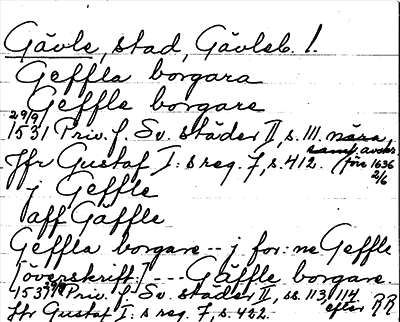 Gävle, stad, Gävleb. l.
Geffla borgara
Geffle borgare
29/9
1531 Priv. f. Sv. städer II, s. 111. nära
samt. avskr.
Jfr Gustaf I: s reg. 7, s. 412. före 1636
2/6
j Geffle
aff Gäffle
Geffla borgare -- j for:ne Geffle
[överskrift] --- Gäffle borgare.
1531 29/9 Priv. f. Sv. städer II, ss. 113, 114.
Jfr Gustaf I: s reg. 7, s. 422. efter RR